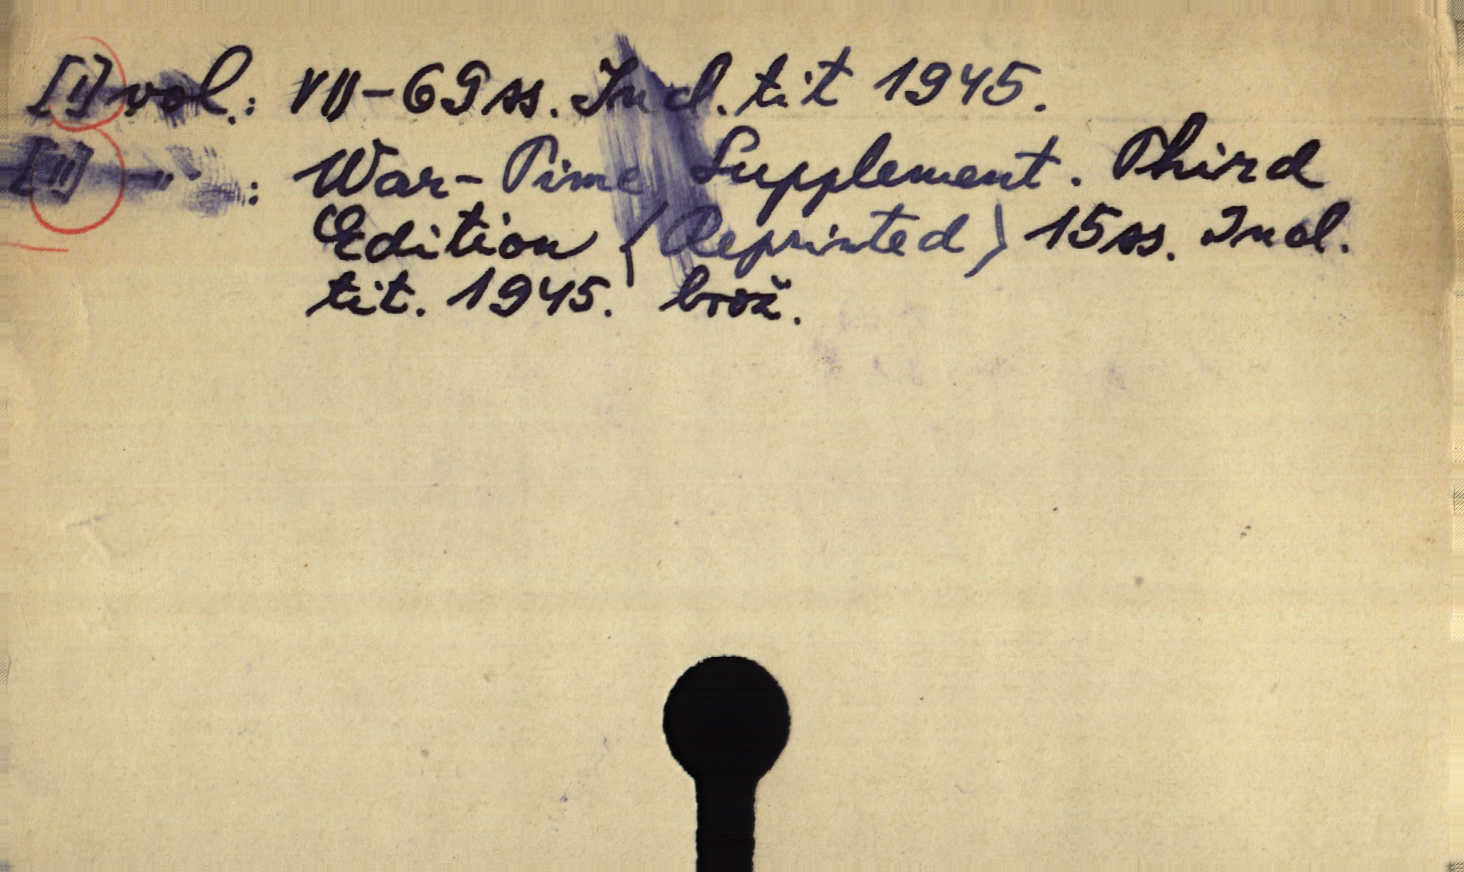 [I] vol.: VII-69 ss. Incl. tit 1945.
[II] -"- : War-Time Supplement. Third
Edition (Reprinted) 15 ss. Incl.
tit. 1945. brož.